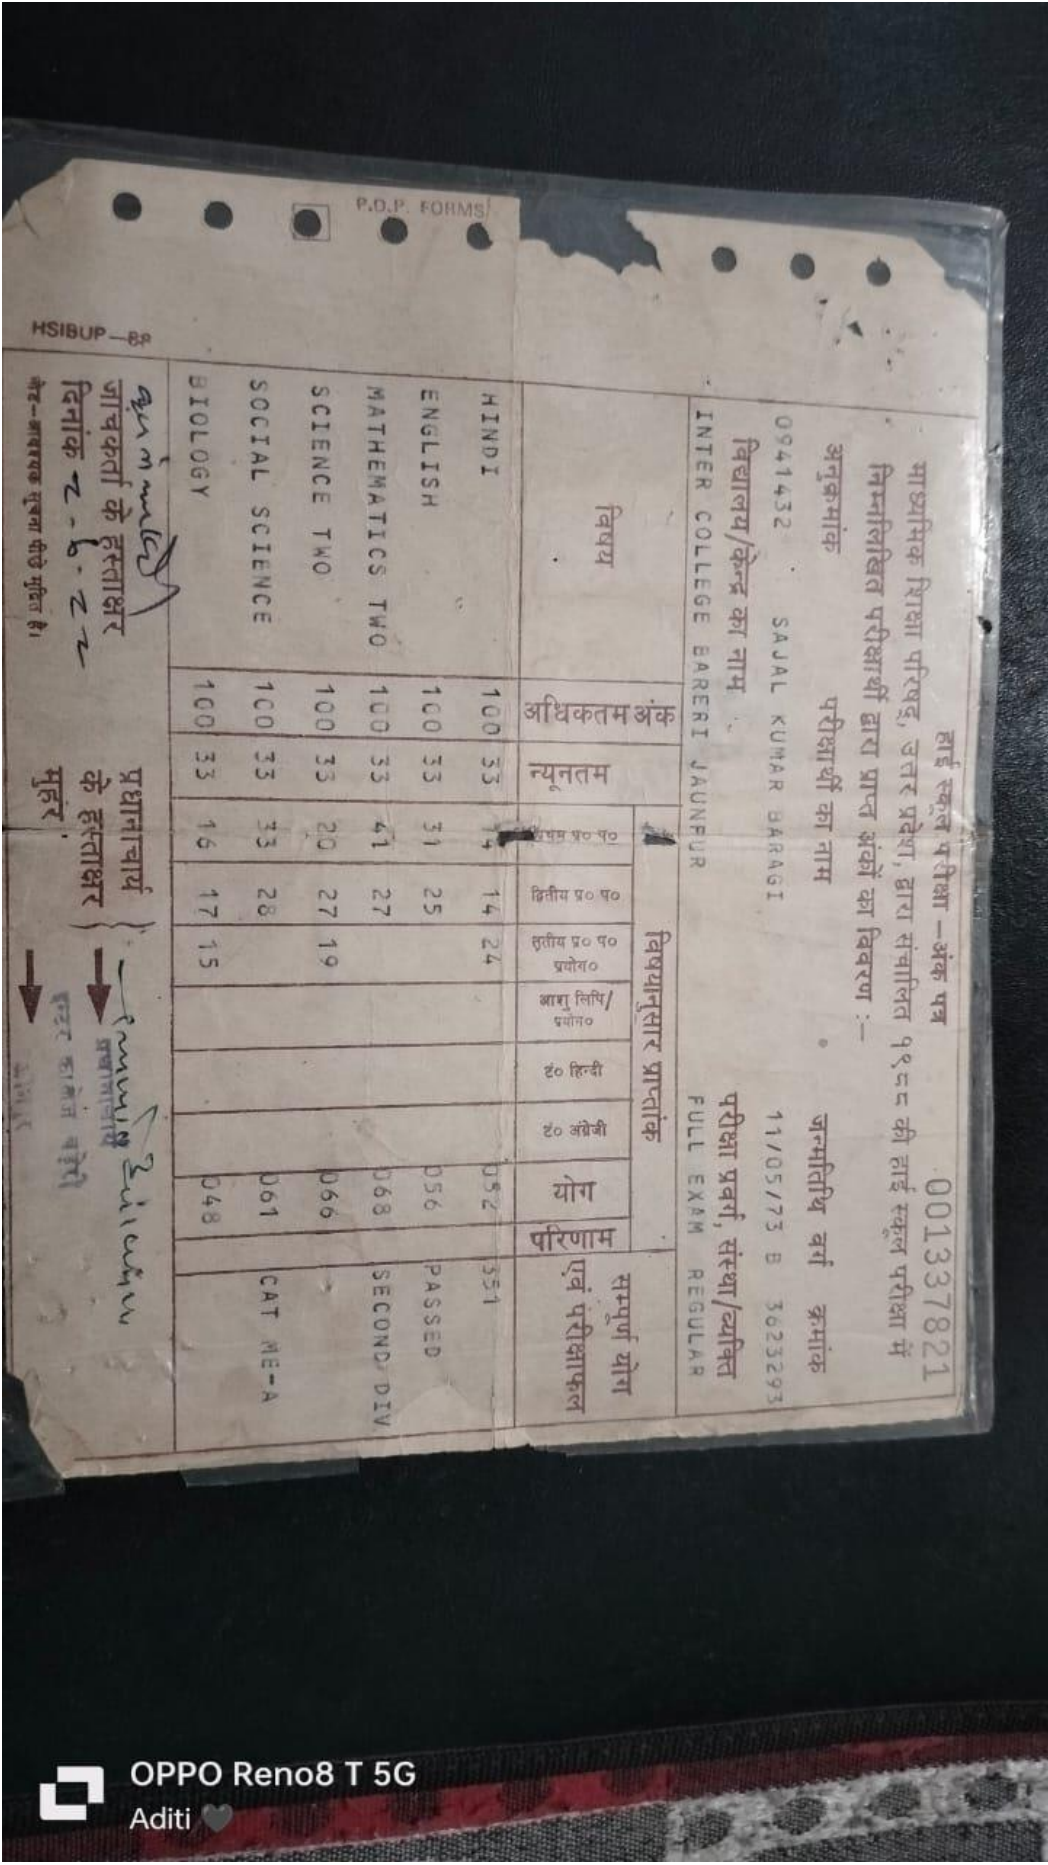 P.D.P. FORMS
हाई स्कूल परीक्षा—अंक पत्र
001337821
माध्यमिक शिक्षा परिषद्, उत्तर प्रदेश, द्वारा संचालित १९८८ की हाई स्कूल परीक्षा में
निम्नलिखित परीक्षार्थी द्वारा प्राप्त अंकों का विवरण :—
अनुक्रमांक परीक्षार्थी का नाम जन्मतिथि वर्ग क्रमांक
0941432 SAJAL KUMAR BARAGI 11/05/73 B 3623293
विद्यालय/केन्द्र का नाम परीक्षा प्रवर्ग, संस्था/व्यक्ति
INTER COLLEGE BARERI JAUNPUR FULL EXAM REGULAR
विषयानुसार प्राप्तांक
विषय अधिकतम अंक न्यूनतम प्रथम प्र० प० द्वितीय प्र० प० तृतीय प्र० प० प्रयोग० आशु लिपि/प्रयोग० टं० हिन्दी टं० अंग्रेजी योग परिणाम सम्पूर्ण योग एवं परीक्षाफल
HINDI 100 33 14 14 24 052 351
ENGLISH 100 33 31 25 056 PASSED
MATHEMATICS TWO 100 33 41 27 068 SECOND DIV
SCIENCE TWO 100 33 20 27 19 066
SOCIAL SCIENCE 100 33 33 28 061 CAT ME-A
BIOLOGY 100 33 16 17 15 048
HSIBUP—88
जांचकर्ता के हस्ताक्षर
दिनांक 2-6-22
प्रधानाचार्य के हस्ताक्षर
मुहर
प्रधानाचार्य
नोट—आवश्यक सूचना पीछे मुद्रित है।
OPPO Reno8 T 5G
Aditi 🖤